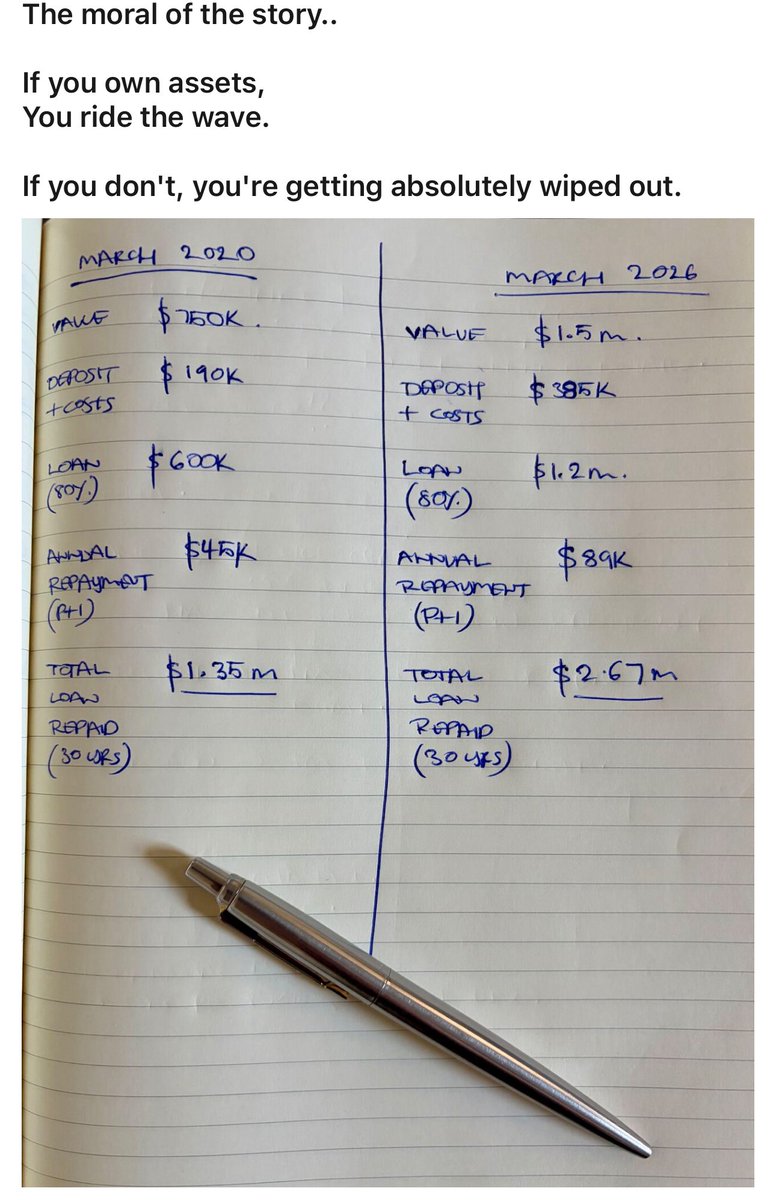 The moral of the story..
If you own assets,
You ride the wave.
If you don't, you're getting absolutely wiped out.
MARCH 2020
VALUE $750K.
DEPOSIT $190K
+ COSTS
LOAN $600K
(80%)
ANNUAL $45K
REPAYMENT
(P+I)
TOTAL $1.35m
LOAN
REPAID
(30 YRS)
MARCH 2026
VALUE $1.5m.
DEPOSIT $385K
+ COSTS
LOAN $1.2m.
(80%)
ANNUAL $89K
REPAYMENT
(P+I)
TOTAL $2.67m
LOAN
REPAID
(30 YRS)